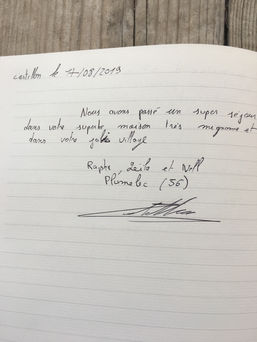 castillon le 7/08/2019
Nous avons passé un super séjour
dans votre superbe maison très mignonne et
dans votre village
Raph Leila et
Plumelec (56)